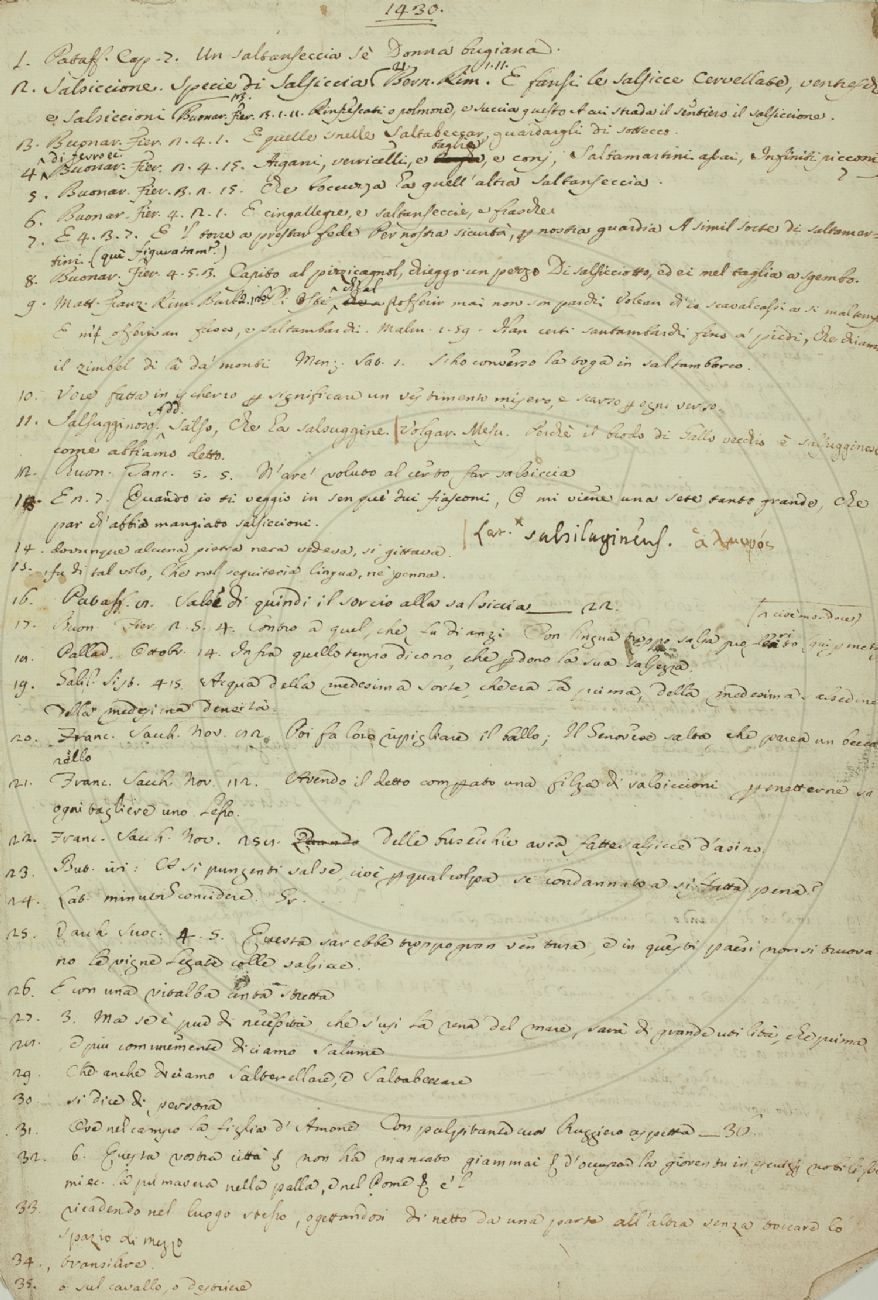 1430.
1. Pataff. Cap. 2. Un saltanseccia sè Donna bugiana.
2. Salsiccione. Specie di Salsiccia Bern. Rim. 1.11. E fansi le salsicce cervellate,
e salsiccioni Buonar. Fier. 3. 1. 11. Rinfrescati o polmone, e succia questo A cui strada il sentiero il salsiccione.
13. Buonar. Fier. 2. 4. 1. E quelle snelle Saltabeccar, guardaigli di sottecco.
4. Buonar. Fier. 2. 4. 15. Argani, verricelli, e taglie, e conj, Saltamartini assai, Infiniti picconi
5. Buonar. Fier. 3. 2. 15. Che boccuzza ha quell'altra Saltanseccia.
6. Buonar. Fier. 4. 2. 1. E cingallegre, e saltanseccie, e frasche
7. E 4. 3. 7. E il torre a prestar fede Per nostra sicurtà, p nostra guardia A simil sorte di saltamar=
tini. (quì figuratam.)
8. Buonar. Fier. 4. 5. 3. Capito al pizzicagnol, chieggo un pezzo Di salsicciotto, ed ei nel taglia a sgembo.
9. Matt. Franz. Rim. Burl. mai non son pardi Volean
E saltambardi. Malm. 1. 59. Han certi santambardi fino a' piedi, che chiam
il zimbel di là da' monti Menz. Sat. 1. S'ho converso la toga in saltambarco.
10. Voce fatta in ischerzo p significare un vestimento misero, e scarso p ogni verso.
11. Salsugginoso. Add. Salso, che ha salsuggine. Volgar. Mesu. Perchè il brodo di Gallo vecchio è salsugginoso
come abbiamo detto.
12. Buon. Tanc. 5. 5. N'are' voluto al certo far salsiccia
13. E 2. 7. Quando io ti veggio in sen que' dui fiasconi, O mi viene una sete tanto grande, che
par ch'abbia mangiato salsiccioni.
14. dovunque alcuna pietra nera vedeva, si gittava. Lat. salsilagineus. ἁλμυρός
15. fu di tal volo, che nol seguiteria lingua, nè penna.
16. Pataff. Saltò di quindi il sorcio alla salsiccia 22.
17. Buon. Fier. 2. 5. 4. Contro a quel, che fu dianzi Con lingua troppo salsa
18. Pallad. Ottobr. 14. Infra quello tempo dicono, che pdono la sua salsezza.
19. Gal. Sist. 415. Acqua della medesima sorte, che era la prima, della medesima salsedine
della medesima densità.
20. Franc. Sacch. Nov. Poi fa loro ripigliare il ballo; Il Genovese salta, che parea un becca
rello
21. Franc. Sacch. Nov. 112. Avendo il detto compato una filza di salsiccioni p metterne su
ogni tagliere uno lesso.
22. Franc. Sacch. Nov. Quando delle busecchie avea fatte salsicce d'asino.
23. But. ivi: A sì pungenti salse, cioè p qual colpa se' condannato a sì fatta pena?
24. Lat. minutm concidere. Gr. . . .
25. Dav. Suoc. 4. 5. Questa sarebbe troppo gran ventura, e in questi paesi non si truova
no le vigne legate colle salsicce.
26. E con una vitalba stretta
27. 3. Ma se è pur di necessità, che s'usi la rena del mare, sarà di grande utilità, che prima
28. e più comunemente diciamo Salume
29. Che anche diciamo Salterellare, e Saltabeccare
30. si dice di persona
31. Ove nel campo la figlia d'Amone Con palpitante cuor Ruggiero aspetta — 30.
32. 6. Questa vostra città non ha mancato giammai d'occupar la gioventù in
la primavera nella palla, e nel Pome
33. ricadendo nel luogo stesso, o gettandosi di netto da una parte all'altra senza toccare lo
spazio di mezzo
34. , transilire.
35. o sul cavallo, o descrive